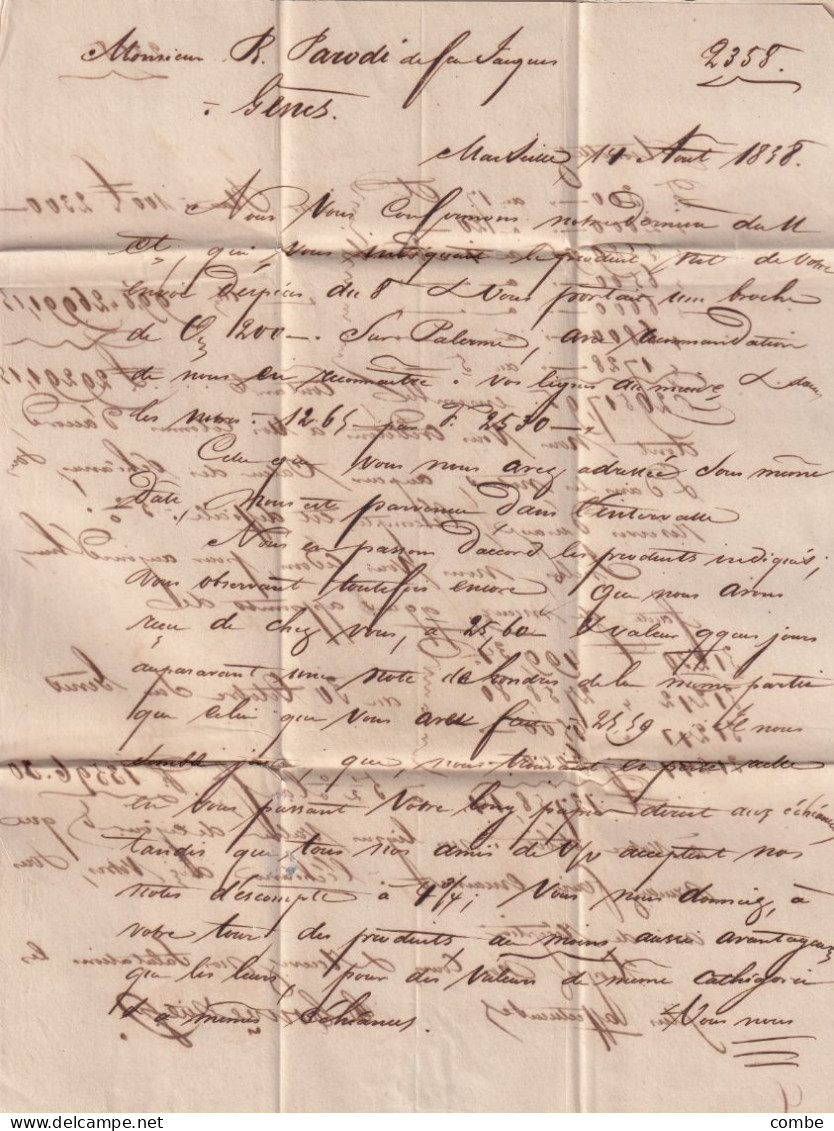 Monsieur R. Parodi de feu Jacques 2358.
Gênes.
Marseille, 14 Août 1838.
Nous Vous confirmons notre dernière du 11
ct, qui Vous indiquait le produit net de votre
envoi d'espèces du 8 & Vous portait une broche
de O/ 200 — Sur Palerme, avec recommandation
de nous en reconnaître. Vos lignes du même & dans
les notres: 1265 pr F. 2530 —.
Celle que Vous nous avez adressée Sous même
date, nous est parvenue dans l'intervalle
Nous en passons d'accord les produits indiqués;
Vous observant toutefois encore que nous avons
reçu de chez vous, à 25,60 & valeur qques jours
auparavant une note de Londres de la même partie
que celui que Vous avez fait 25.59 Il nous
semble juste que, nous
en Vous passant Votre long papier direct aux échéances,
tandis que tous nos amis de V/v acceptent nos
notes d'escompte à 4 3/4; Vous nous donniez, à
votre tour des produits au moins aussi avantageux
que les leurs, pour des valeurs de même cathégorie
& à mêmes échéances. Vous nous
combe